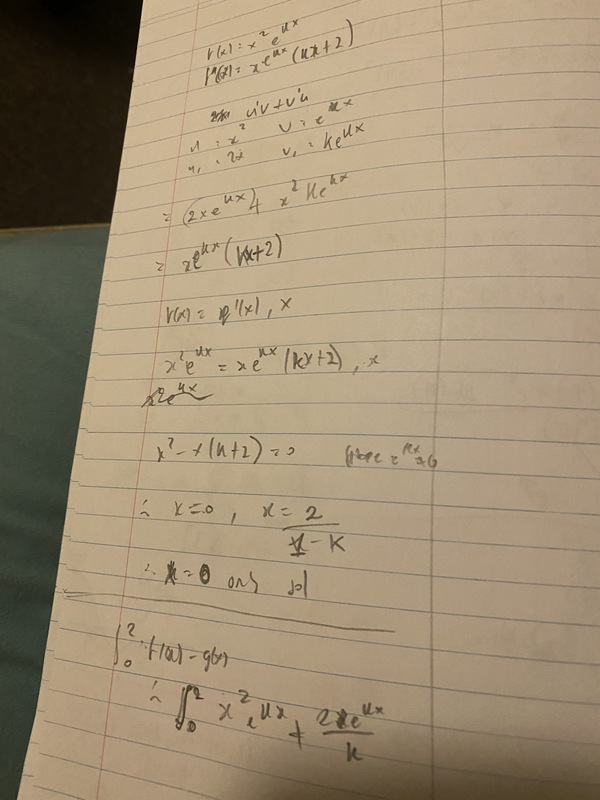 f(x) = x² e^kx
f'(x) = x e^kx (kx+2)
u'v + v'u
u = x² v = e^kx
u, = 2x v, = ke^kx
= (2xe^kx) + x² ke^kx
= xe^kx (kx+2)
f(x) = f'(x), x
x² e^kx = xe^kx (kx+2), x
x² e^kx
x² - x(k+2) = 0 e^kx ≠ 0
∴ x = 0, x = 2/(1-k)
∴ k = 0 only sol
∫₀² f(x) - g(x)
∴ ∫₀² x² e^kx + 2xe^kx/k